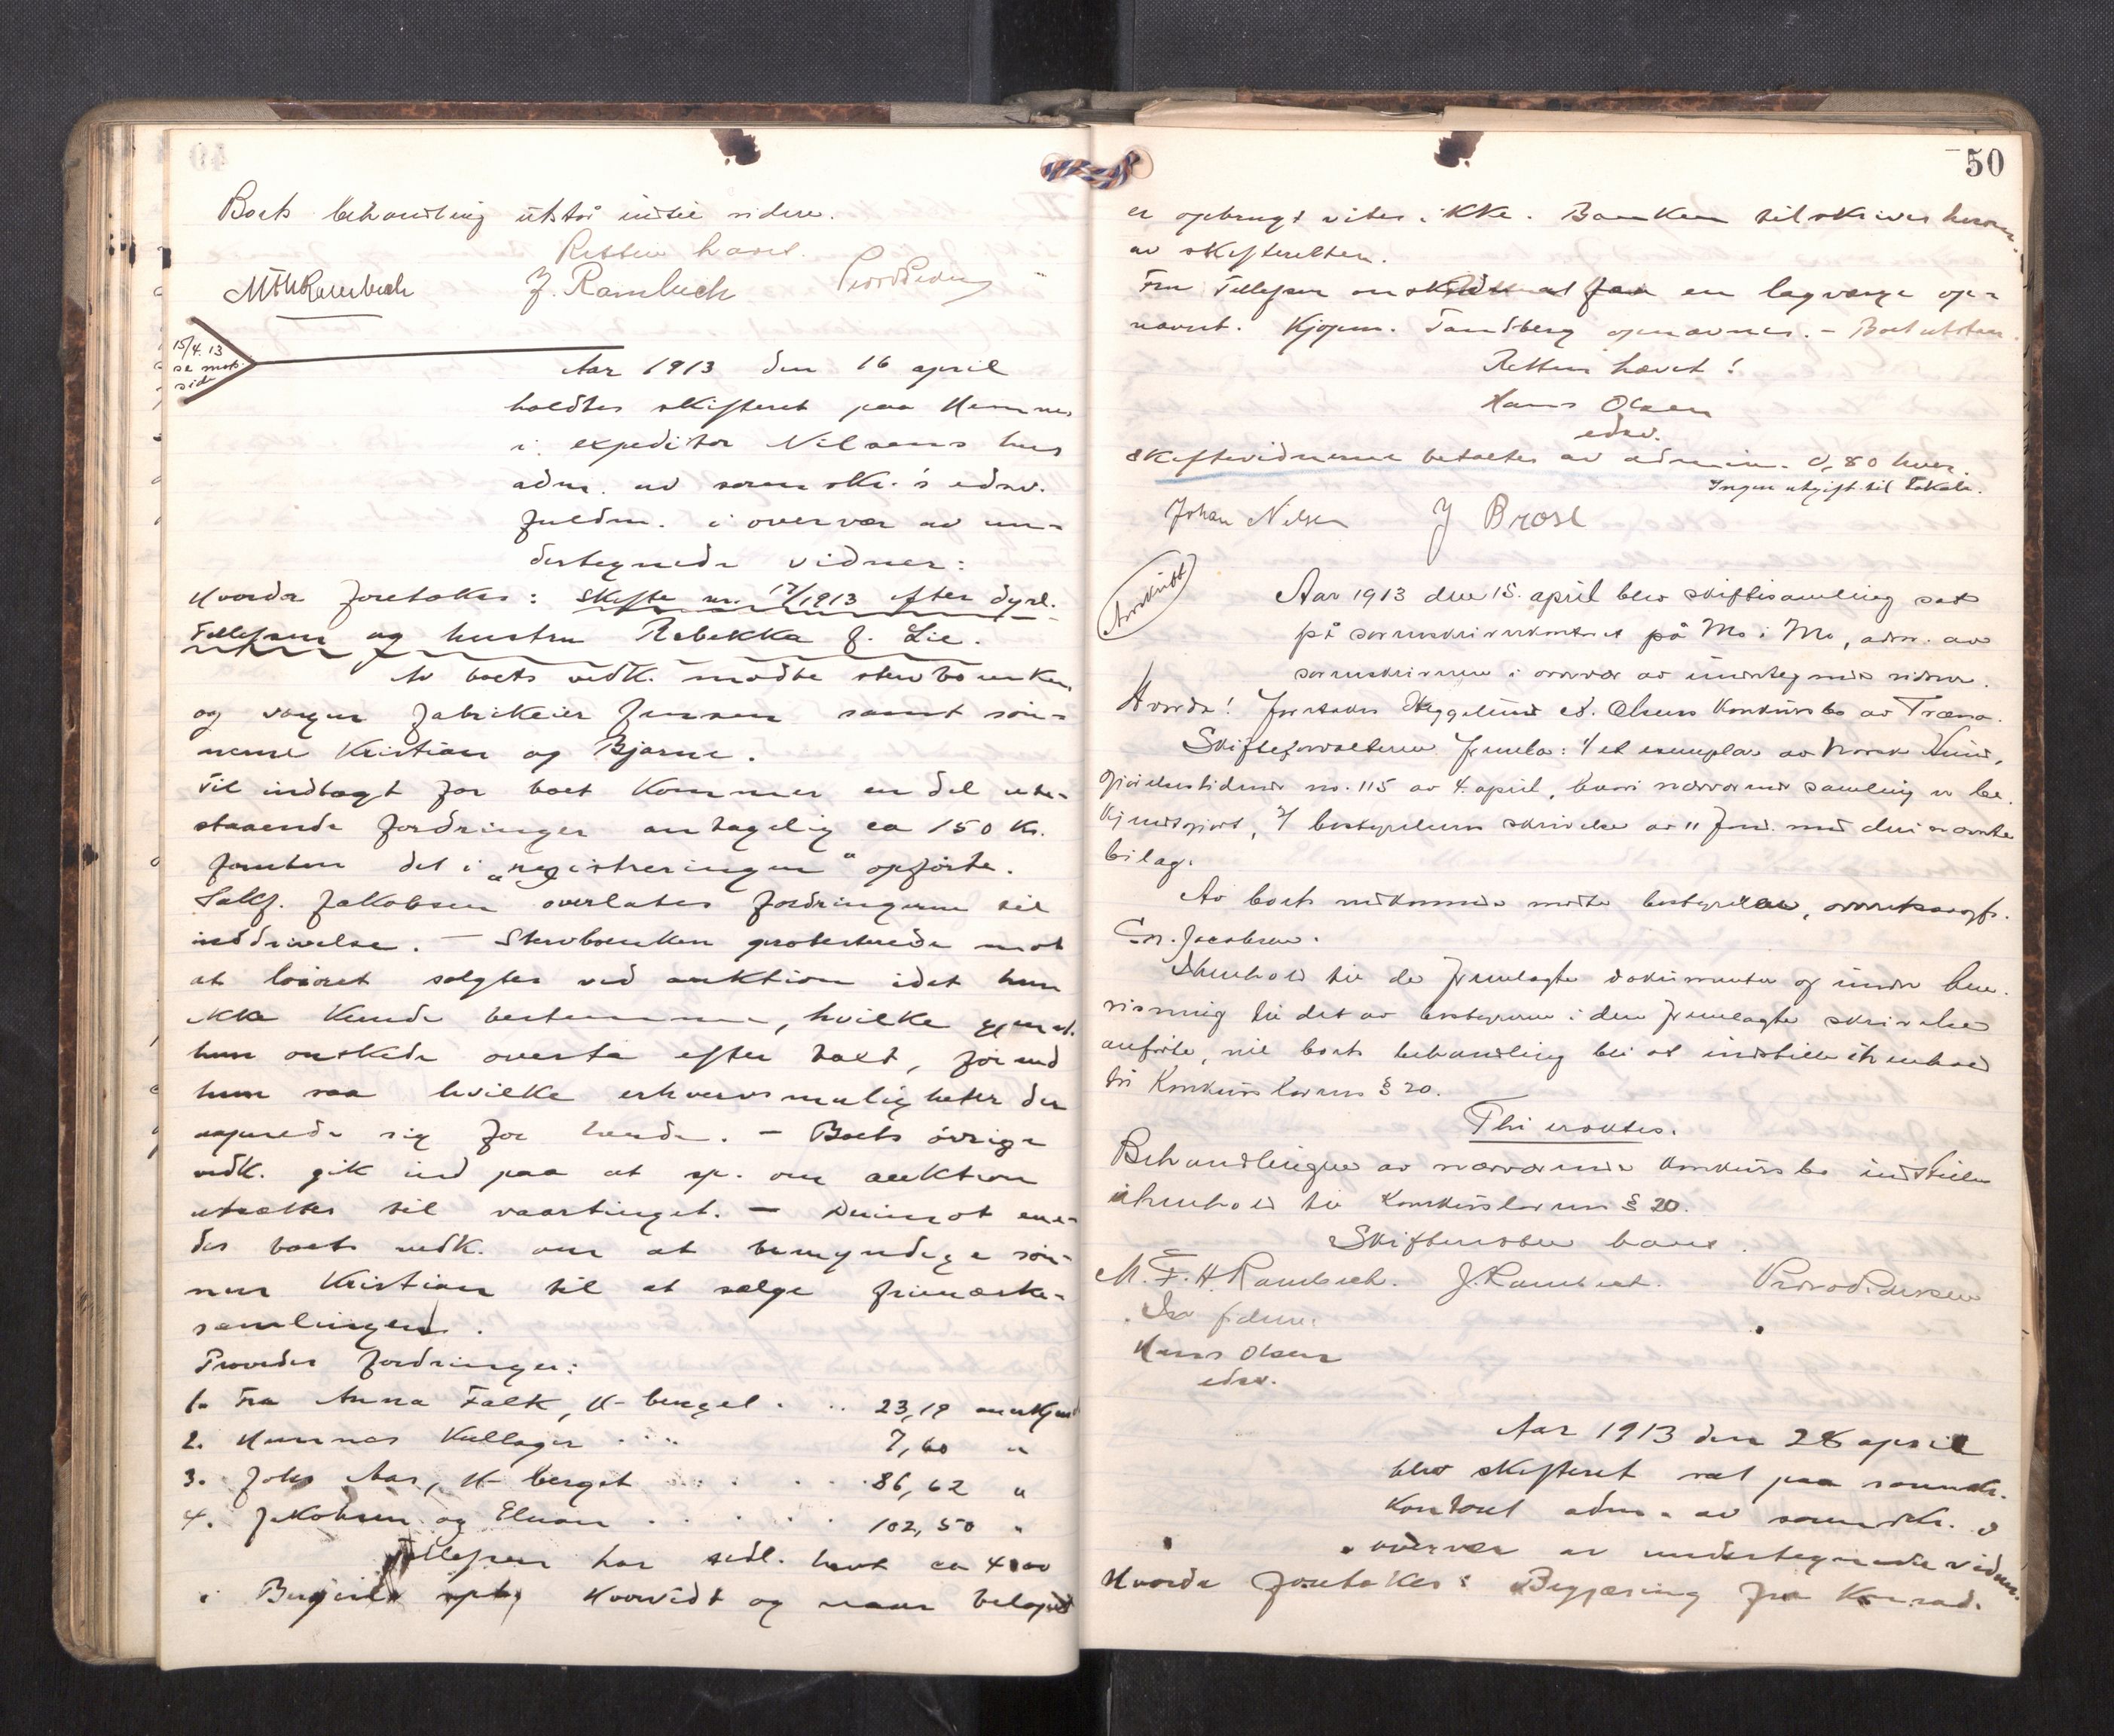 Boets behandling utstår indtil videre.
Retten hævet.
MFHRambech J. Rambech
15/4.13
se mots.
side
Aar 1913 den 16 april
holdtes skifteret paa Hemnes
i expeditør Nilsens hus
adm. av sorenskr.'s edsv.
fuldm. i overvær av un-
dertegnede vidner:
Hvorda foretokes: Skifte nr. 17/1913 efter dyrl.
Tellefsen og hustru Rebekka f. Lie.
Av boets vedk. mødte stervboenken
og værgen fabrikeier Jensen samt søn-
nerne Kristian og Bjarne.
Til indtægt for boet kommer en del ute-
staaende fordringer antagelig ca 150 kr.
foruten det i "registreringen" opførte.
Sakf. Jakobsen overlates fordringerne til
inddrivelse. — Stervboenken protesterede mot
at løsøret solgtes ved auktion idet hun
ikke kunde bestemme, hvilke gjenst.
hun ønskede overta efter takst, førend
hun saa hvilke erhvervsmuligheter der
aapnede sig for hende. — Boets øvrige
vedk. gik ind paa at sp. om auktion
utsættes til vaartinget. — Derimot ene-
des boets vedk. om at bemyndige søn-
nen Kristian til at sælge frimerke-
samlingen.
Provedes fordringer:
1. Fra Anna Falk, H-berget . .. 23,19 anerkjendt
2. Hemnes Kullager . .. 7,60 "
3. Johs Aas, H-berget . . . . 86,62 "
4. Jakobsen og Elvan . . . . . 102,50 "
Tellefsen har sedl. havt ca 4000
i Hvorvidt og naar beløpet
50
er opbrugt vites ikke. Banken tilskrives herom
av skifteretten.
Fru Tellefsen ønsket at faa en lagværge op-
nævnt. Kjøpm. Sandberg opnævnes. – Boet utstaar.
Retten hævet!
Hans Olsen
edsv.
Skiftevidnerne betaltes av admin. 0,80 hver.
Ingen utgift til lokale.
Johan Nilsen J Brose
Avskrift
Aar 1913 den 15. april blev skiftesamling sat
på sorenskriverkontoret på Mo i Mo, adm. av
sorenskriveren i overvær av undertegnede vidner.
Hvorda! Foretokes Heggelund Olsens konkursbo av Træna.
Skifteforvalteren fremla: 1/ et exemplar av Norsk Kund-
gjørelsestidende no. 115 av 4. april, hvori nærværende samling er be-
kjendtgjort, 2/ bestyrerens skrivelse av 11 ds. med deri nævnte
bilag.
Av boets vedkommende møtte bestyreren, overretssakf.
Chr. Jacobsen.
I henhold til de fremlagte dokumenter og under hen-
visning til det av bestyreren i den fremlagte skrivelse
anførte, vil boets behandling bli at indstille i henhold
til konkurslovens § 20.
Thi eragtes.
Behandlingen av nærværende konkursbo indstilles
i henhold til konkurslovens § 20.
Skifteretten hævet.
M. F. H. Rambech. J. Rambech.
Hans Olsen
edsv.
Aar 1913 den 28 april
blev skifteret sat paa sorenskr.
kontoret adm. av sorenskr. i
overvær av undertegnede vidner.
Hvorda foretokes: Begjæring fra Konrad.